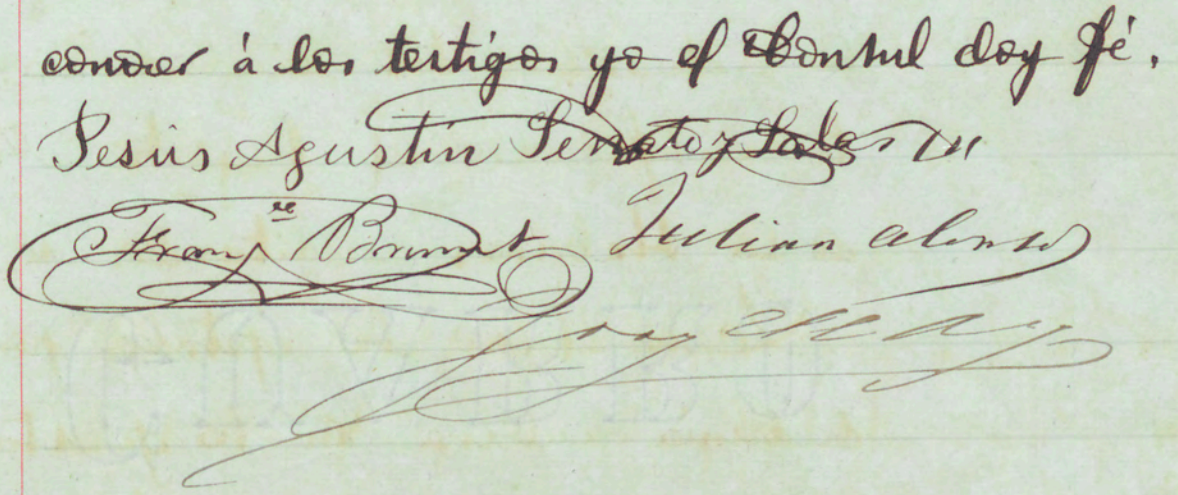 conocer á los testigos yo el Consul doy fé.
Jesús Agustin Serrate y Salas
Fran.co Brunet Julian Alonso